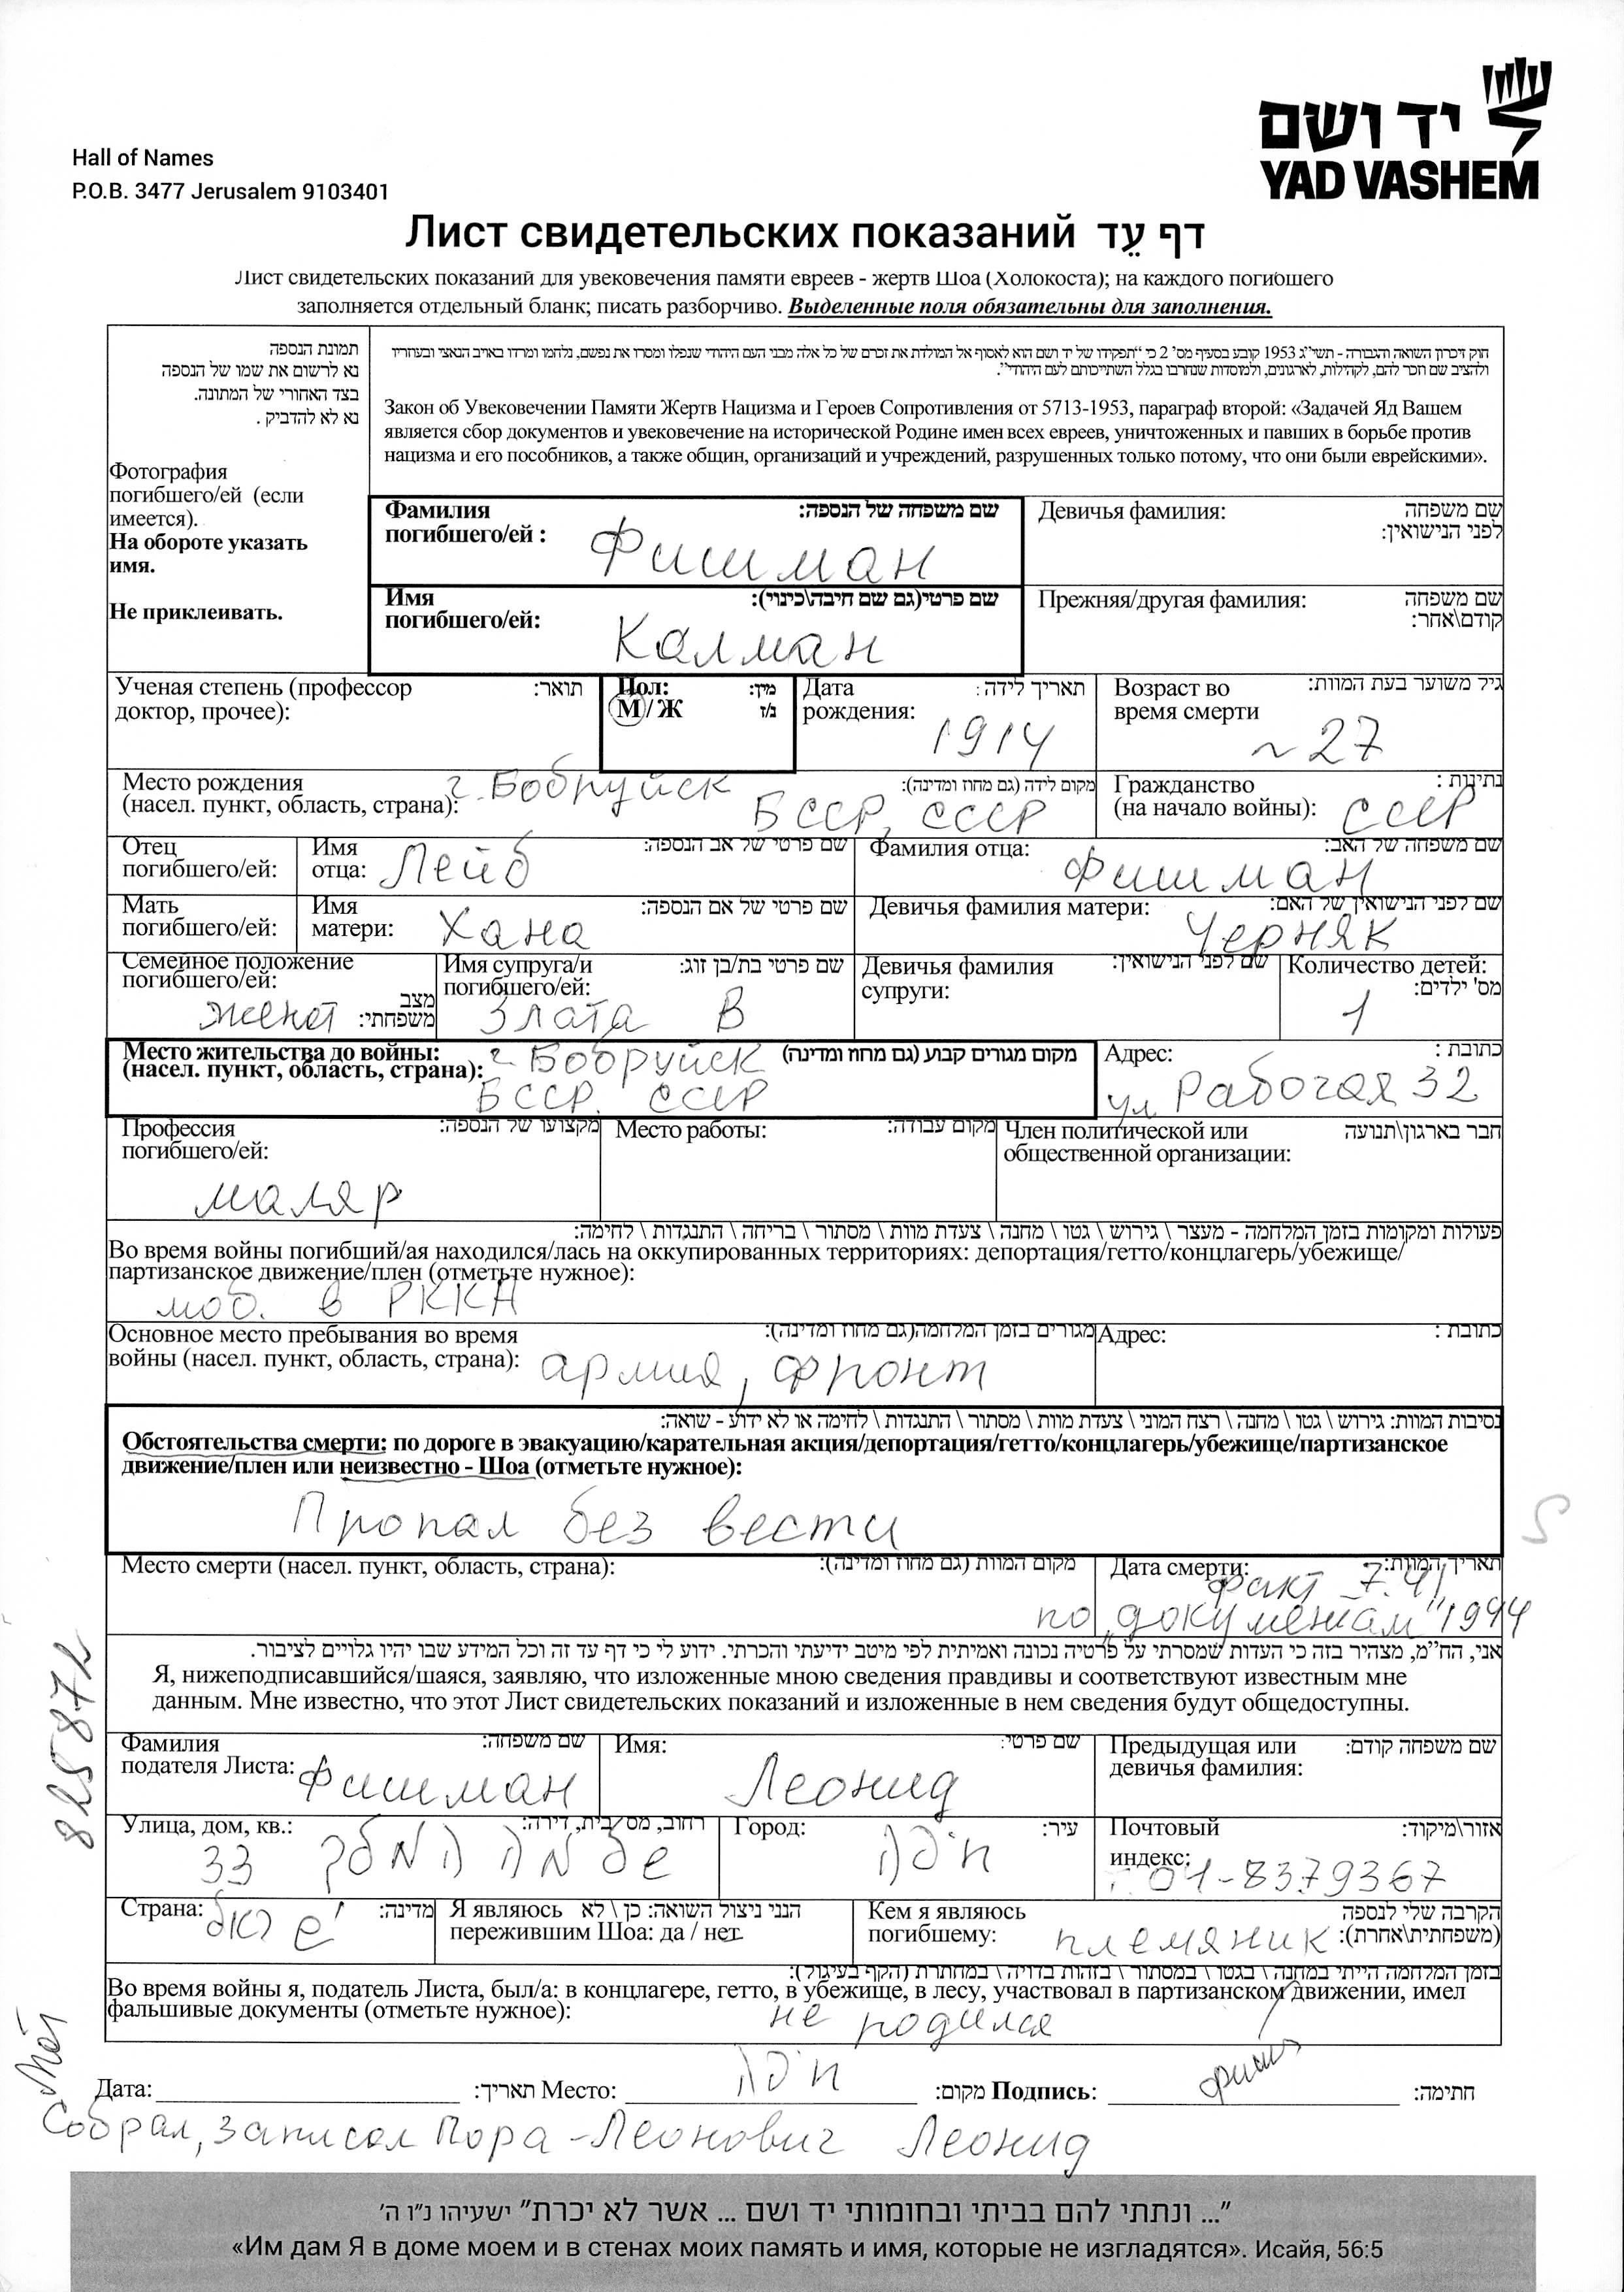 יד ושם
YAD VASHEM
Hall of Names
P.O.B. 3477 Jerusalem 9103401
Лист свидетельских показаний דף עֵד
Лист свидетельских показаний для увековечения памяти евреев - жертв Шоа (Холокоста); на каждого погибшего
заполняется отдельный бланк; писать разборчиво. Выделенные поля обязательны для заполнения.
תמונת הנספה
נא לרשום את שמו של הנספה
בצד האחורי של המתונה.
נא לא להדביק .
Фотография
погибшего/ей (если
имеется).
На обороте указать
имя.
Не приклеивать.
חוק זיכרון השואה והגבורה - תשי"ג 1953 קובע בסעיף מס' 2 כי "תפקידו של יד ושם הוא לאסוף אל המולדת את זכרם של כל אלה מבני העם היהודי שנפלו ומסרו את נפשם, נלחמו ומרדו באויב הנאצי ובעוזריו
ולהציב שם וזכר להם, לקהילות, לארגונים, ולמוסדות שנחרבו בגלל השתייכותם לעם היהודי".
Закон об Увековечении Памяти Жертв Нацизма и Героев Сопротивления от 5713-1953, параграф второй: «Задачей Яд Вашем
является сбор документов и увековечение на исторической Родине имен всех евреев, уничтоженных и павших в борьбе против
нацизма и его пособников, а также общин, организаций и учреждений, разрушенных только потому, что они были еврейскими».
Фамилия שם משפחה של הנספה:
погибшего/ей :
Фишман
Девичья фамилия: שם משפחה
לפני הנישואין:
Имя שם פרטי(גם שם חיבה\כינוי):
погибшего/ей:
Калман
Прежняя/другая фамилия: שם משפחה
קודם\אחר:
Ученая степень (профессор תואר:
доктор, прочее):
Пол: מין:
М / Ж ז/נ
Дата תאריך לידה:
рождения:
1914
Возраст во גיל משוער בעת המוות:
время смерти
~ 27
Место рождения מקום לידה (גם מחוז ומדינה):
(насел. пункт, область, страна):
г. Бобруйск
БССР, СССР
Гражданство נתינות :
(на начало войны): СССР
Отец
погибшего/ей:
Имя שם פרטי של אב הנספה:
отца: Лейб
Фамилия отца: שם משפחה של האב:
Фишман
Мать
погибшего/ей:
Имя שם פרטי של אם הנספה:
матери: Хана
Девичья фамилия матери: שם לפני הנישואין של האם:
Черняк
Семейное положение
погибшего/ей:
מצב
משפחתי: женат
Имя супруга/и שם פרטי בת/בן זוג:
погибшего/ей:
Злата В
Девичья фамилия שם לפני הנישואין:
супруги:
Количество детей:
מס' ילדים:
1
Место жительства до войны: מקום מגורים קבוע (גם מחוז ומדינה)
(насел. пункт, область, страна):
г. Бобруйск
БССР. СССР
Адрес: כתובת :
ул Рабочая 32
Профессия מקצועו של הנספה:
погибшего/ей:
маляр
Место работы: מקום עבודה:
Член политической или חבר בארגון\תנועה
общественной организации:
פעולות ומקומות בזמן המלחמה - מעצר \ גירוש \ גטו \ מחנה \ צעדת מוות \ מסתור \ בריחה \ התנגדות \ לחימה:
Во время войны погибший/ая находился/лась на оккупированных территориях: депортация/гетто/концлагерь/убежище/
партизанское движение/плен (отметьте нужное):
моб. в РККА
Основное место пребывания во время מגורים בזמן המלחמה(גם מחוז ומדינה):
войны (насел. пункт, область, страна): армия, фронт
Адрес: כתובת :
נסיבות המוות: גירוש \ גטו \ מחנה \ רצח המוני \ צעדת מוות \ מסתור \ התנגדות \ לחימה או לא ידוע - שואה:
Обстоятельства смерти: по дороге в эвакуацию/карательная акция/депортация/гетто/концлагерь/убежище/партизанское
движение/плен или неизвестно - Шоа (отметьте нужное):
Пропал без вести
S
Место смерти (насел. пункт, область, страна): מקום המוות (גם מחוז ומדינה):
Дата смерти: תאריך המוות:
факт 7.41
по "документам" 1944
אני, הח"מ, מצהיר בזה כי העדות שמסרתי על פרטיה נכונה ואמיתית לפי מיטב ידיעתי והכרתי. ידוע לי כי דף עד זה וכל המידע שבו יהיו גלויים לציבור.
Я, нижеподписавшийся/шаяся, заявляю, что изложенные мною сведения правдивы и соответствуют известным мне
данным. Мне известно, что этот Лист свидетельских показаний и изложенные в нем сведения будут общедоступны.
Фамилия שם משפחה:
подателя Листа: Фишман
Имя: שם פרטי:
Леонид
Предыдущая или שם משפחה קודם:
девичья фамилия:
Улица, дом, кв.: רחוב, מס' בית, דירה:
שלמה המלך 33
Город: עיר:
חיפה
Почтовый אזור\מיקוד:
индекс:
т. 04-8379367
Страна: מדינה:
ישראל
Я являюсь הנני ניצול השואה: כן \ לא
пережившим Шоа: да / нет
Кем я являюсь הקרבה שלי לנספה
погибшему: (משפחתית\אחרת):
племяник
בזמן המלחמה הייתי במחנה \ בגטו \ במסתור \ בזהות בדויה \ במחתרת (הקף בעיגול):
Во время войны я, податель Листа, был/а: в концлагере, гетто, в убежище, в лесу, участвовал в партизанском движении, имел
фальшивые документы (отметьте нужное):
не родился
Дата: תאריך: Место: חיפה מקום: Подпись: Фиш חתימה:
Собрал, записал Пора-Леонович Леонид
"... ונתתי להם בביתי ובחומותי יד ושם ... אשר לא יכרת" ישעיהו נ"ו ה'
«Им дам Я в доме моем и в стенах моих память и имя, которые не изгладятся». Исайя, 56:5